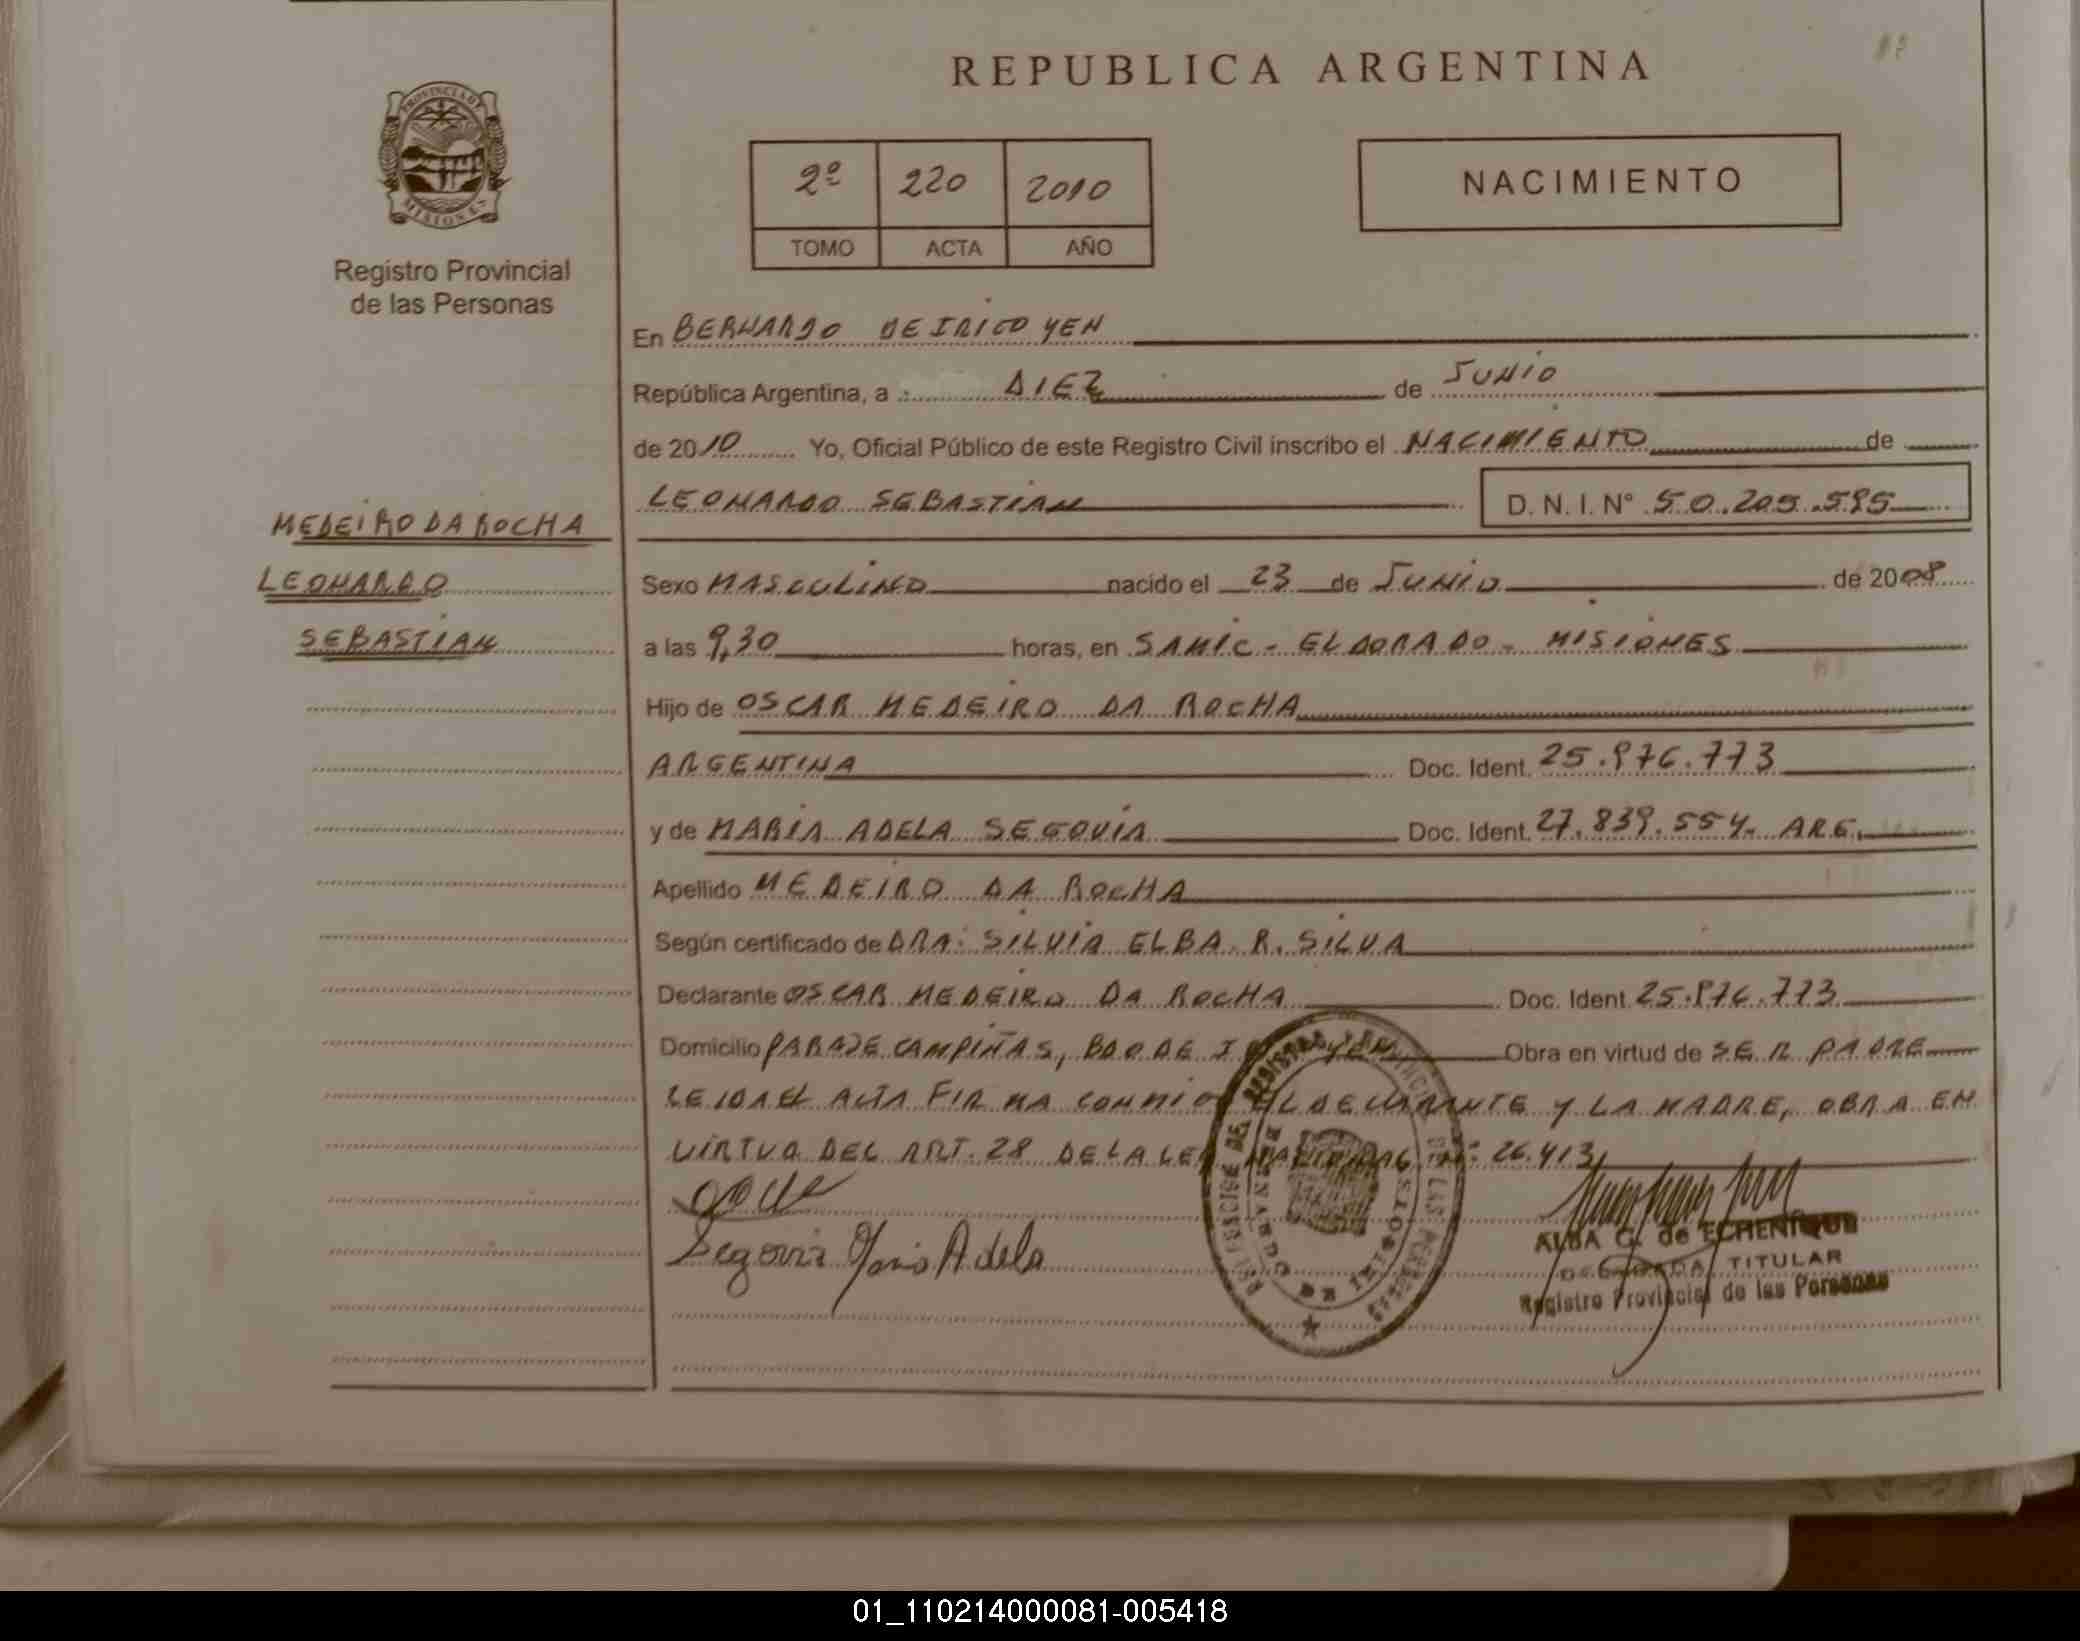 REPUBLICA ARGENTINA
PROVINCIA DE
MISIONES
Registro Provincial
de las Personas
2º 220 2010
TOMO ACTA AÑO
NACIMIENTO
En BERNARDO DE IRIGOYEN
República Argentina, a DIEZ de JUNIO
de 2010 Yo, Oficial Público de este Registro Civil inscribo el NACIMIENTO de
LEONARDO SEBASTIAN D. N. I. N° 50.205.595
MEDEIRO DA ROCHA
LEONARDO
SEBASTIAN
Sexo MASCULINO nacido el 23 de JUNIO de 2008
a las 9,30 horas, en SAMIC - ELDORADO - MISIONES
Hijo de OSCAR MEDEIRO DA ROCHA
ARGENTINA Doc. Ident. 25.976.773
y de MARIA ADELA SEGOVIA Doc. Ident. 27.839.554. ARG.
Apellido MEDEIRO DA ROCHA
Según certificado de DRA. SILVIA ELBA R. SILVA
Declarante OSCAR MEDEIRO DA ROCHA Doc. Ident. 25.976.773
Domicilio PARAJE CAMPIÑAS, BDO DE Obra en virtud de SER PADRE
LEIDA EL ACTA FIRMA CONMIGO EL DECLARANTE Y LA MADRE, OBRA EN
VIRTUD DEL ART. 28 DE LA LEY NACIONAL Nº 26.413
Segovia Maria Adela
ALBA G. de ECHENIQUE
DELEGADA TITULAR
Registro Provincial de las Personas
01_110214000081-005418